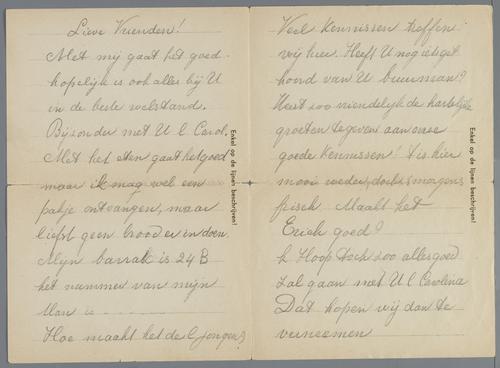 Lieve Vrienden!
Met mij gaat het goed.
hopelijk is ook alles bij U
in de beste welstand.
Bijzonder met U l Carol.
Met het eten gaat het goed
maar ik mag wel een
pakje ontvangen, maar
liefst geen brood er in doen.
Mijn barrak is 24 B
het nummer van mijn
Man is
Hoe maakt het de l jongen?
Enkel op de lijnen beschrijven!
Veel kennissen troffen
wij hier. Heeft U nog iets ge
hoord van U buurman?
Weest zoo vriendelijk de hartelijke
groeten te geven aan onze
goede kennissen! t is hier
mooi weder, doch smorgens
frisch Maakt het
Erich goed?
k Hoop toch zoo alles goed
zal gaan met U l Carolina
Dat hopen wij dan te
vernemen
Enkel op de lijnen beschrijven!